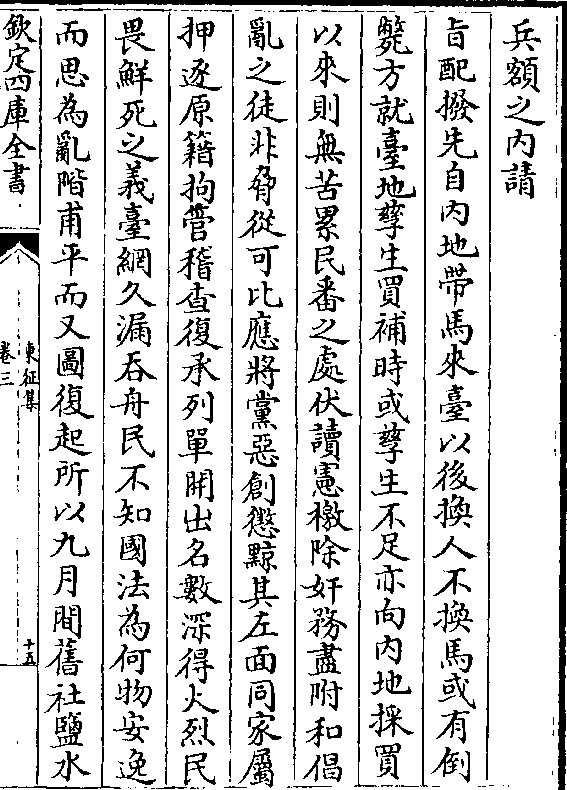 兵額之內請
旨配撥先自內地帶馬來臺以後換人不換馬或有倒
斃方就臺地孳生買補時或孳生不足亦向內地採買
以來則無苦累民番之處伏讀憲檄除奸務盡附和倡
亂之徒非脅從可比應將黨惡創懲黥其左面同家屬
押逐原籍拘管稽查復承列單開出名數深得火烈民
畏鮮死之義臺網久漏吞舟民不知國法為何物安逸
而思為亂階甫平而又圖復起所以九月間舊社鹽水
欽定四庫全書
東征集
卷三
十五